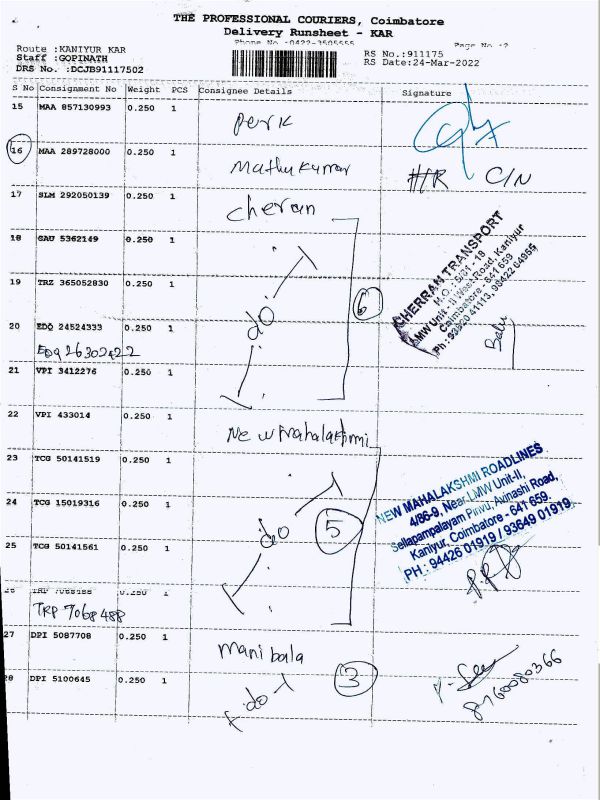 THE PROFESSIONAL COURIERS, Coimbatore
Delivery Runsheet - KAR
Phone No -0422-3505555
Page No -2
Route :KANIYUR KAR
Staff :GOPINATH
DRS No. :DCJB91117502
RS No.:911175
RS Date:24-Mar-2022
S No Consignment No Weight PCS Consignee Details Signature
15 MAA 857130993 0.250 1
Perk
16 MAA 289728000 0.250 1
Mathukumar
H/R C/N
17 SLM 292050139 0.250 1
Cheran
18 GAU 5362149 0.250 1
19 TRZ 365052830 0.250 1
do 6
CHERRAN TRANSPORT
H.O. : 5/31 - 18
LMW Unit - II West Road, Kaniyur
Coimbatore - 641 659
20 EDQ 24524333 0.250 1
EDQ 26302422
21 VPI 3412276 0.250 1
22 VPI 433014 0.250 1
New Mahalakshmi
23 TCG 50141519 0.250 1
24 TCG 15019316 0.250 1
do 5
NEW MAHALAKSHMI ROADLINES
4/86-9, Near LMW Unit-II,
Avinashi Road,
Kaniyur, Coimbatore - 641 659.
PH : 94426 01919 / 93649 01919
25 TCG 50141561 0.250 1
26 TRP 7068488 0.250 1
TRP 7068488
27 DPI 5087708 0.250 1
Manibala
28 DPI 5100645 0.250 1
do 3
8760080366